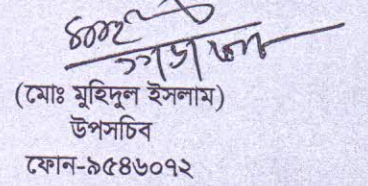 (মোঃ মুহিদুল ইসলাম)
উপসচিব
ফোন-৯৫৪৬০৭২